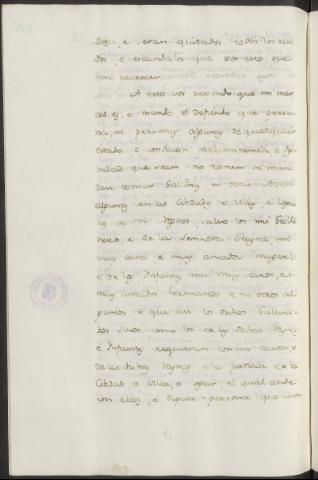 dos, e seran quitados todos los rui
dos, e escandalos que por esto pue
den recrecer.
A esto vos respondo que mi mer
ced es, e mando, e defiendo que perso
na, ni personas algunas de qualquier
estado o condicion preheminencia o dig
nidad que sean no tomen ni man
den tomar Gallinas ni otras Aves
algunas en las Cibdades e Villas e luga
res de mis Reynos, salvo los mis Galli
neros e de la Sennora Reyna mi
muy cara e muy amada muger
e de los Infantes mis muy caros, e
muy amados hermanos e no otros al
gunos e que aun los dichos Galline
ros suios como los de los dichos Reyna
e Infantes requieran con mi carta, o
de los dichos Reyna a la Justicia de la
Cibdad, o Villa, o lugar, el qual ande
con ellos e dipute persona que